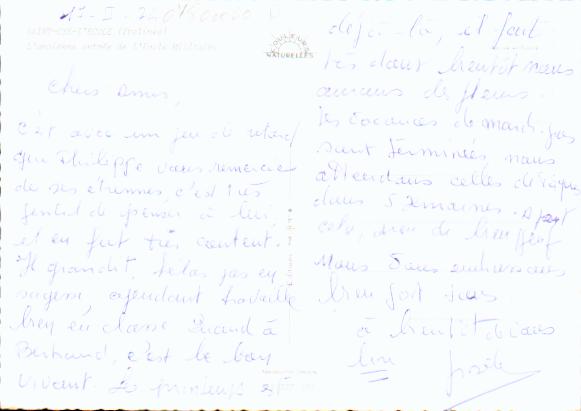 SAINT-CYR-L'ECOLE (Yvelines)
L'ancienne entrée de l'Ecole Militaire
COULEURS
NATURELLES
Chers amis,
C'est avec un peu de retard
que Philippe vous remercie
de ses étrennes, c'est très
gentil de penser à lui
et en fut très content.
Il grandit, hélas pas en
sagesse, cependant travaille
bien en classe. Quand à
Bertrand, c'est le bon
vivant. Le printemps est
déjà là, et fait
très doux bientôt nous
aurons des fleurs.
Les vacances de
sont terminées nous
attendons celles de Pâques
dans 5 semaines. à part
cela, rien de bien neuf
Nous vous embrassons
bien fort tous
à bientôt de vous
lire